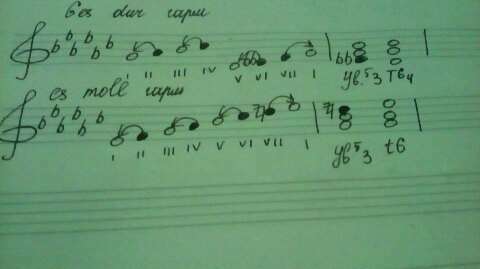 Ges dur гарм
I II III IV V VI VII I Ув.53 T64
es moll гарм
I II III IV V VI VII I Ув53 t6